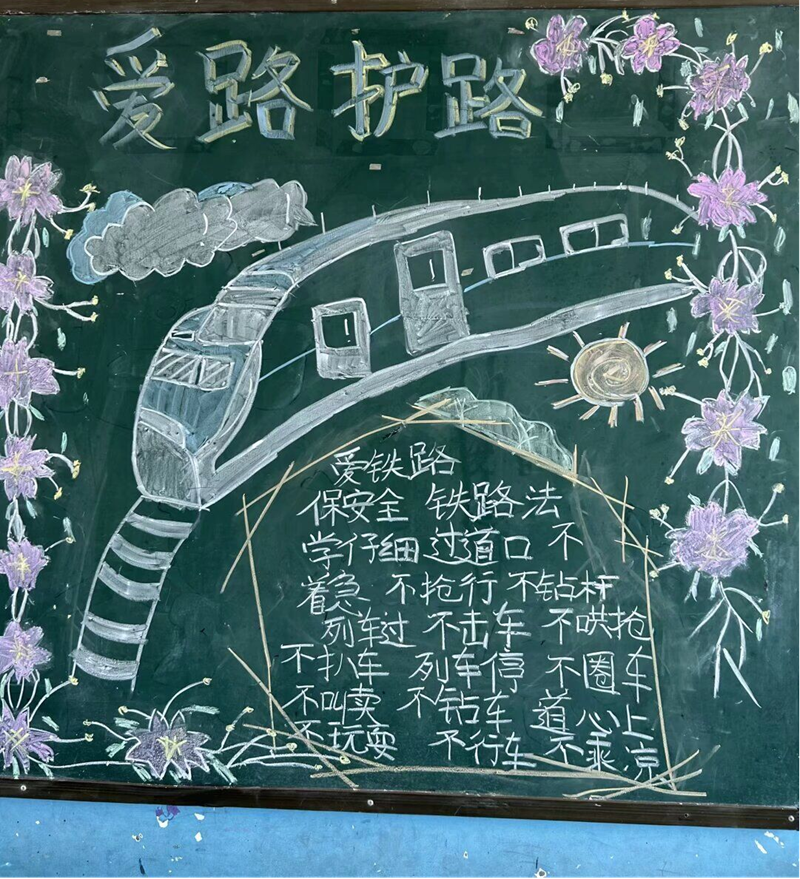 爱路护路
爱铁路
保安全 铁路法
学仔细 过道口 不
着急 不抢行 不钻杆
列车过 不击车 不哄抢
不扒车 列车停 不圈车
不叫卖 不钻车 道心上
不玩耍 不行车 不乘凉